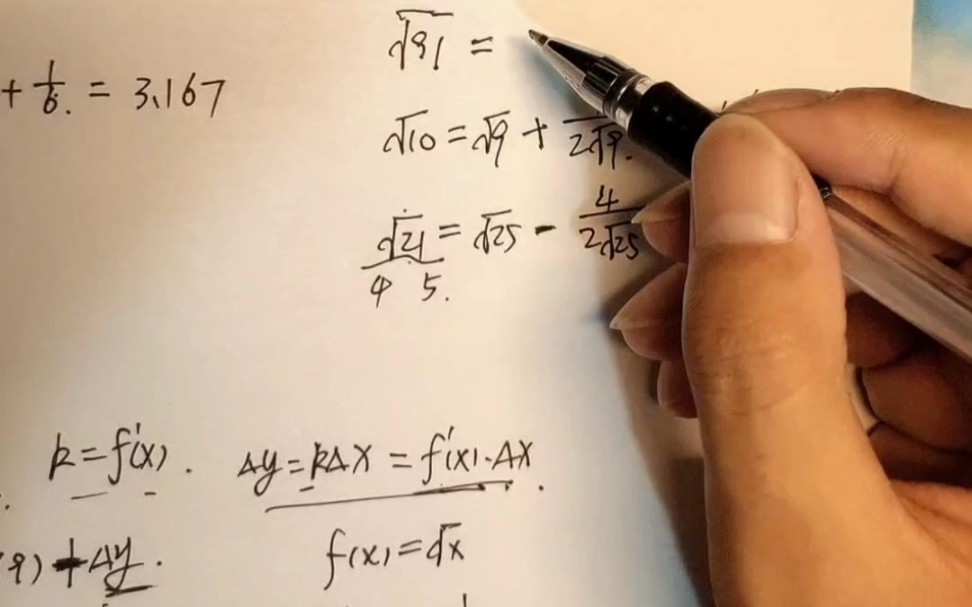 √91 =
+ 1/6. = 3.167
√10 = √9 + /2√9.
√21 = √25 - 4/2√25
4 5.
k = f'(x). Δy = kΔx = f'(x)·Δx.
9) + Δy. f(x) = √x